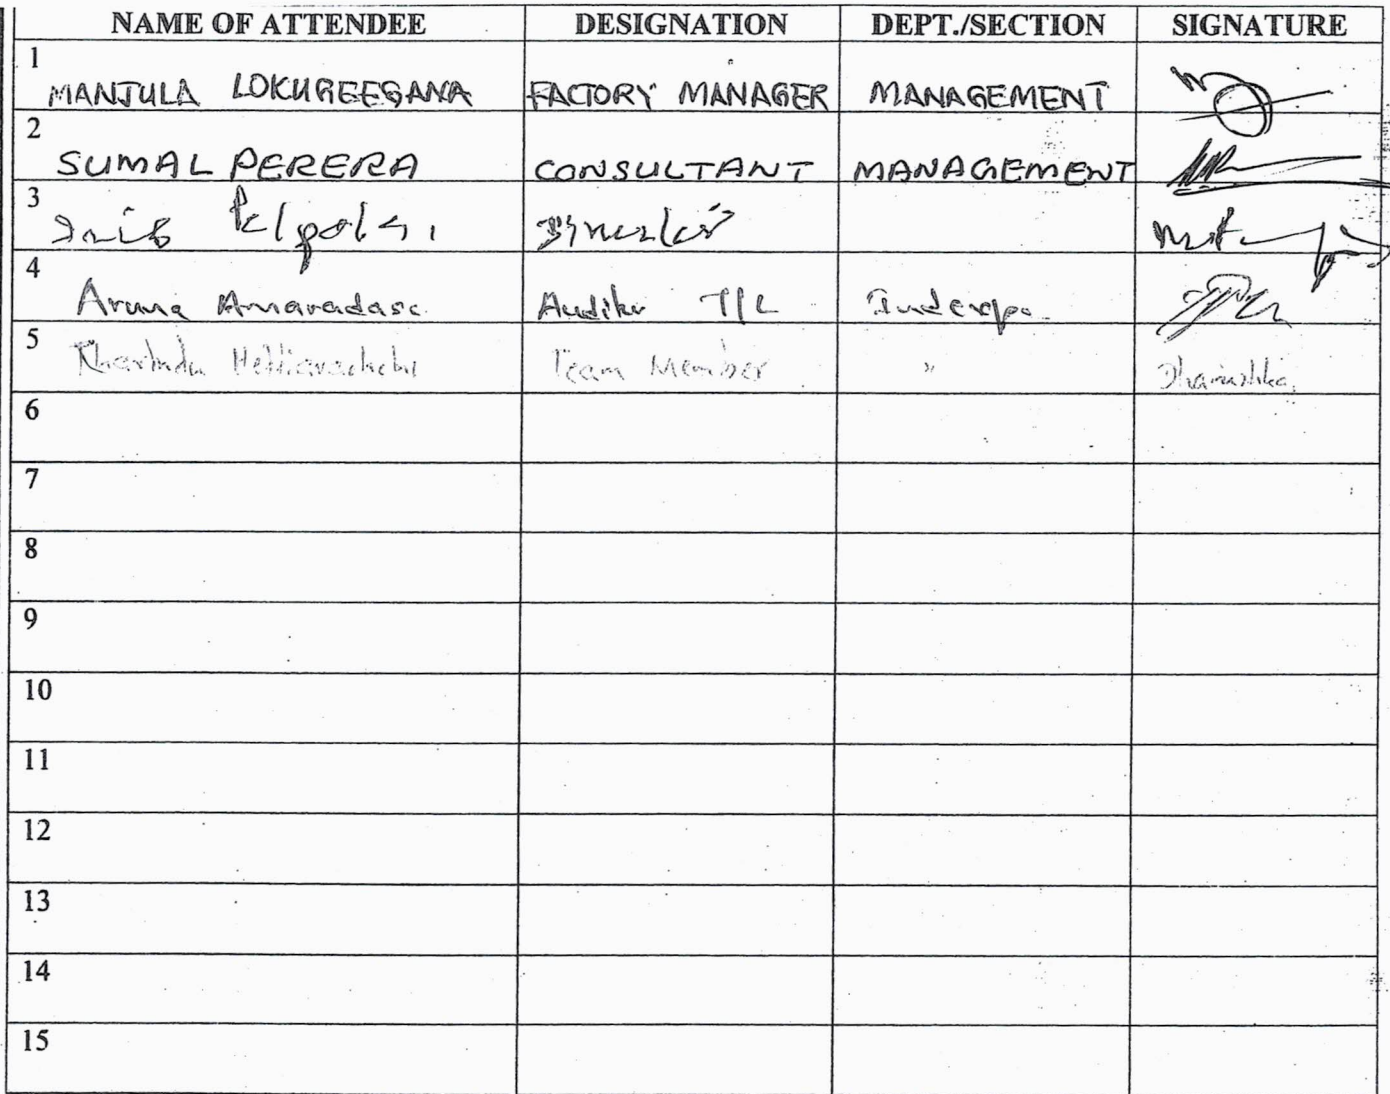 NAME OF ATTENDEE DESIGNATION DEPT./SECTION SIGNATURE
1
MANJULA LOKUGEEGANA FACTORY MANAGER MANAGEMENT
2
SUMAL PERERA CONSULTANT MANAGEMENT
3
4
Aruna Amaradasa Auditor T/L
5
Hettiarachchi Team Member "
6
7
8
9
10
11
12
13
14
15